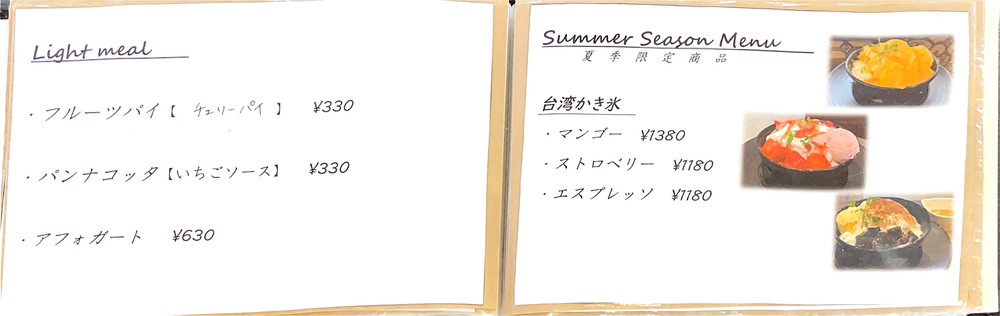 Light meal
・フルーツパイ【 チェリーパイ 】 ¥330
・パンナコッタ【いちごソース】 ¥330
・アフォガート ¥630
Summer Season Menu
夏季限定商品
台湾かき氷
・マンゴー ¥1380
・ストロベリー ¥1180
・エスプレッソ ¥1180